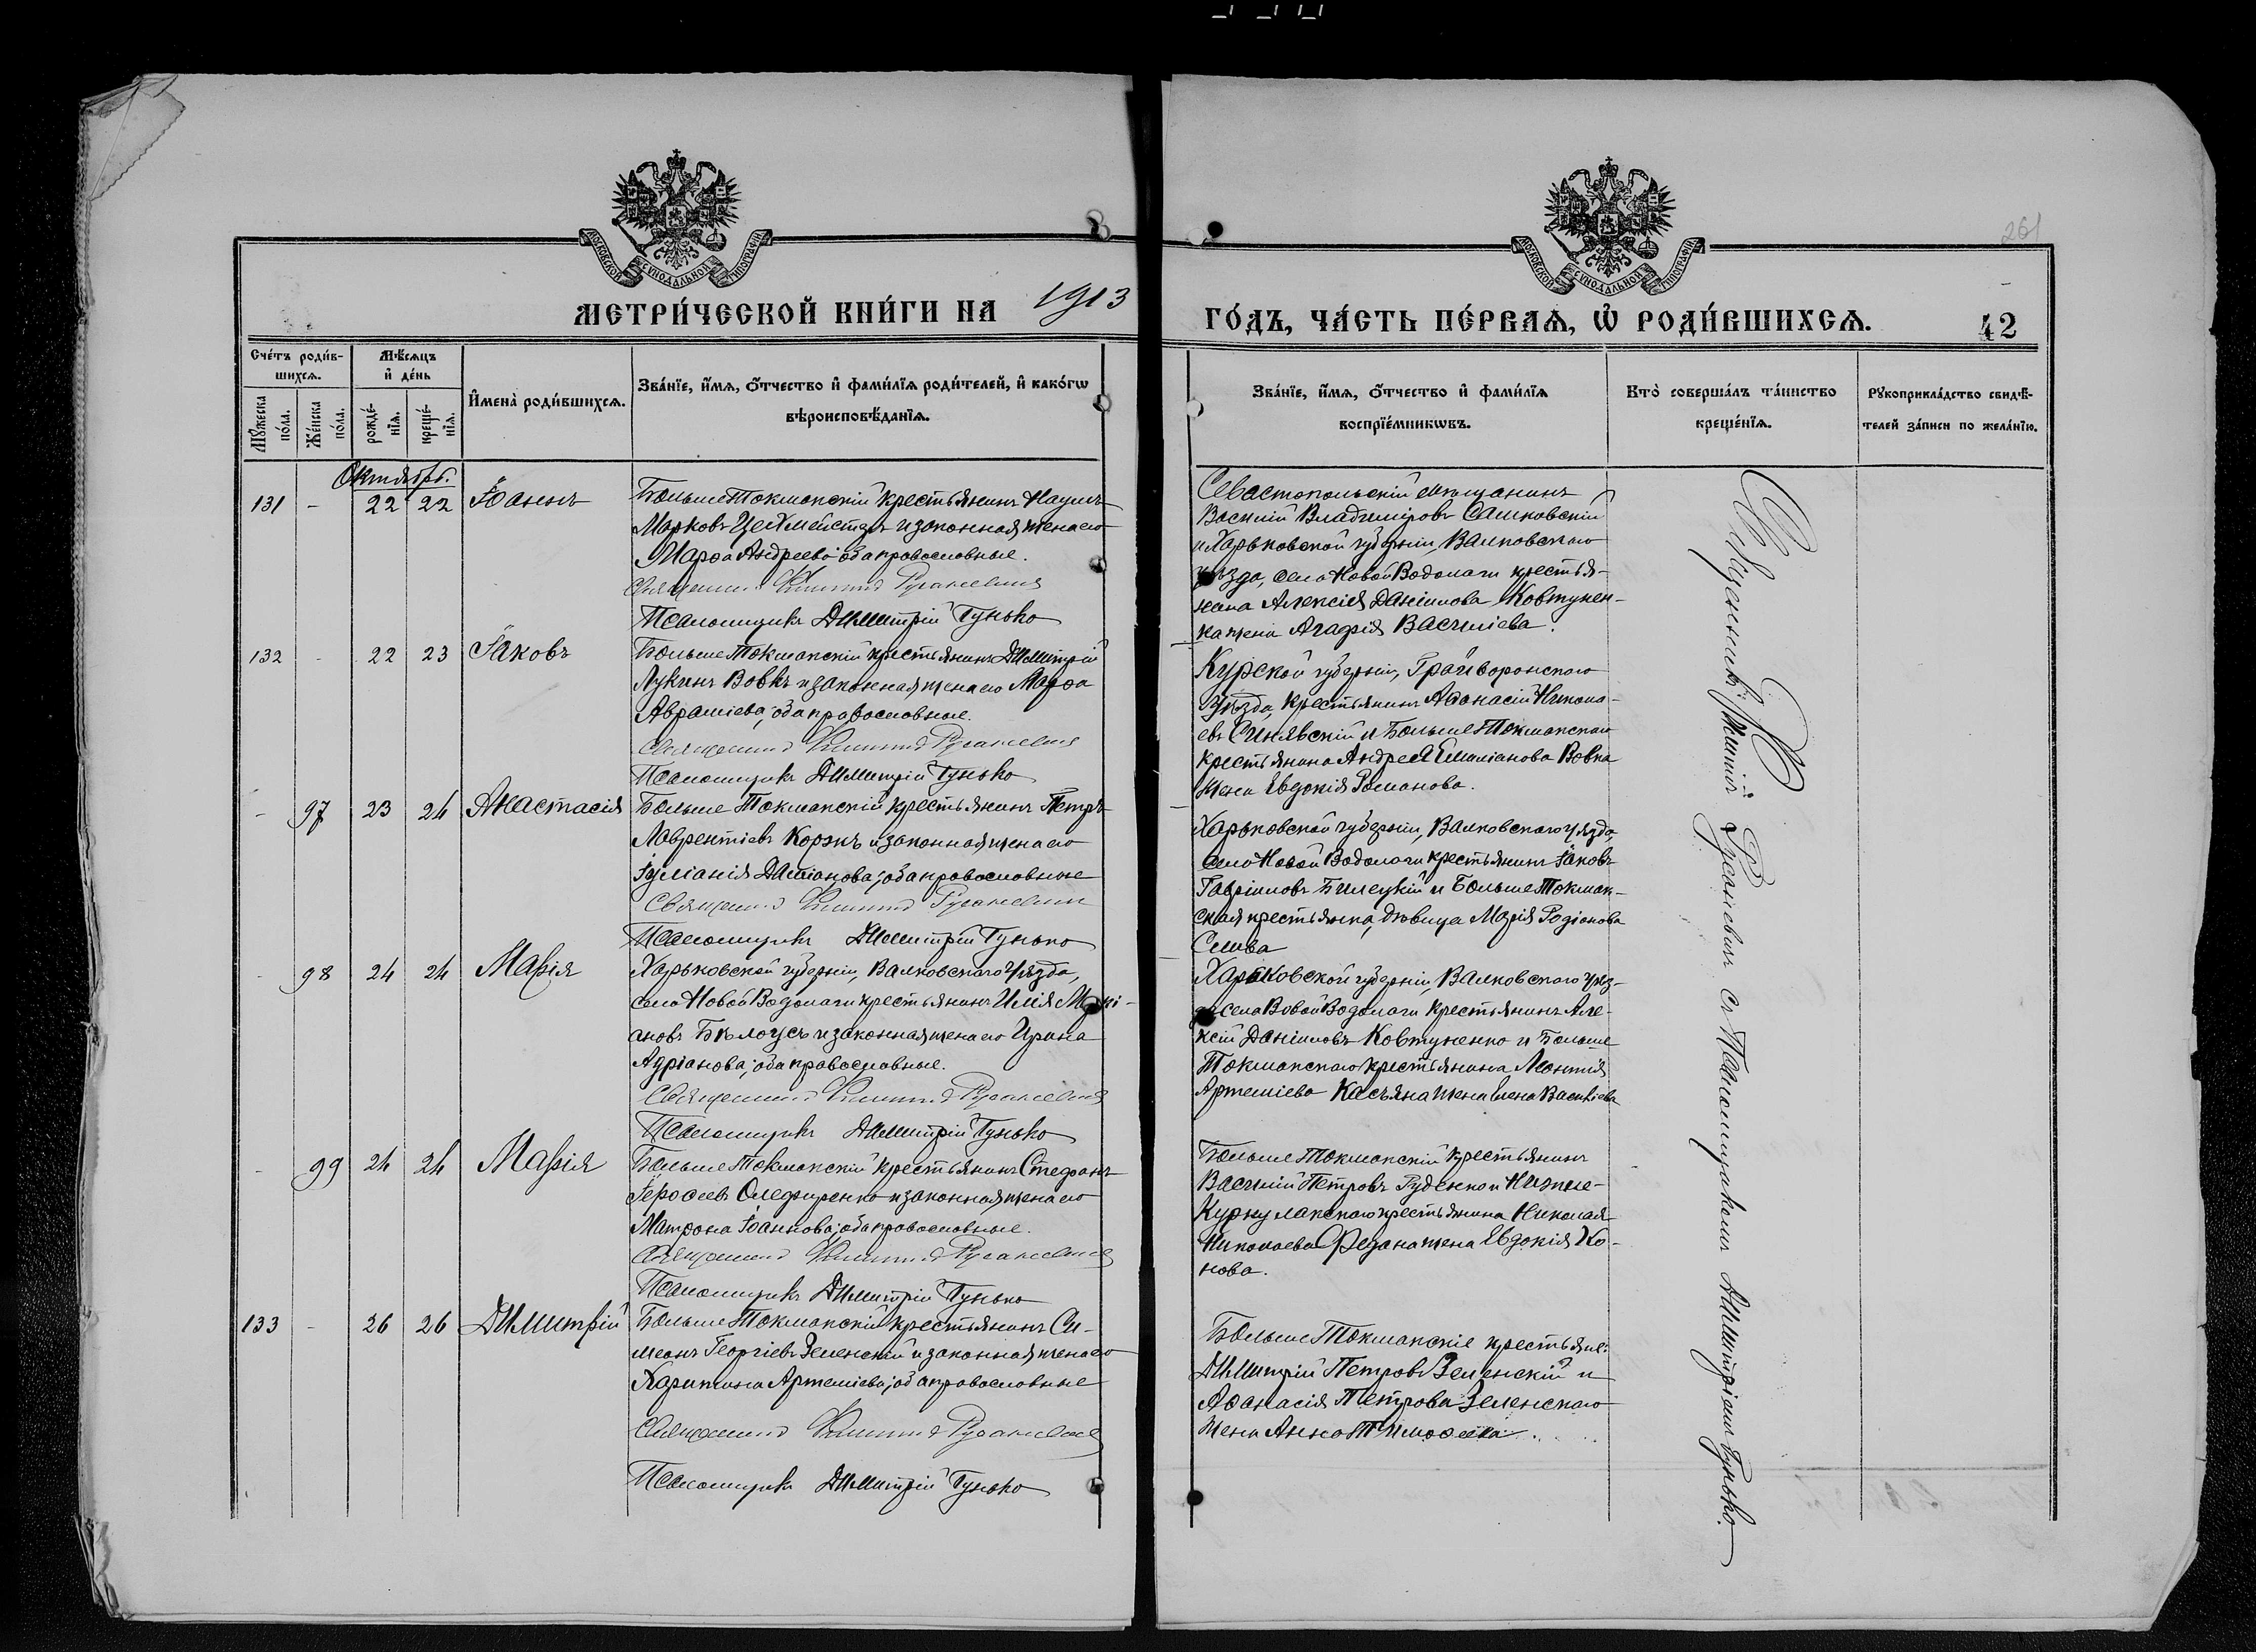 261
МОСКОВСКОЙ СУНОДАЛЬНОЙ ТИПОГРАФІИ
МОСКОВСКОЙ СУНОДАЛЬНОЙ ТИПОГРАФІИ
МЕТРИ́ЧЕСКОЙ КНИ́ГИ НА 1913
ГО́ДЪ, ЧА́СТЬ ПЕ́РВАѦ, Ѡ҆ РОДИ́ВШИХСѦ.
42
Сче́тъ роди́в-
шихсѧ.
Мѣ́сѧцъ
и҆ де́нь
Мꙋ́жеска
по́ла.
Же́нска
по́ла.
рожде́-
нїѧ.
креще́-
нїѧ.
И҆мена̀ роди́вшихсѧ.
Зва́нїе, и҆́мѧ, о҆́тчество и҆ фами́лїѧ роди́телей, и҆ како́гѡ
вѣроисповѣ́данїѧ.
Зва́нїе, и҆́мѧ, о҆́тчество и҆ фами́лїѧ
воспрїе́мникѡвъ.
Кто̀ соверша́лъ та́инство
креще́нїѧ.
Рꙋкоприкла́дство свидѣ́-
телей за́писи по жела́нїю.
Октябрь.
131 - 22 22 Іоаннъ
БольшеТокмакскій крестьянинъ Наумъ
Марковъ Цехмейстеръ и законная жена его
Марѳа Андреева; оба православные.
Священникъ Русаневичъ
Псаломщикъ Димитрій Гунько
Севастопольскій мѣщанинъ
Василій Владиміровъ Сашковскій
и Харьковской губерніи, Валковскаго
уѣзда, села Новой Водолаги крестья-
нина Алексія Даніилова Ковтунен-
ка жена Агафія Васильева.
132 - 22 23 Іаковъ
БольшеТокмакскій крестьянинъ Димитрій
Лукинъ Вовкъ и законная жена его Марѳа
Авраміева; оба православные.
Священникъ Русаневичъ
Псаломщикъ Димитрій Гунько
Курской губерніи, Грайворонскаго
уѣзда, крестьянинъ Аѳанасій Никола-
евъ Синявскій и БольшеТокмакскаго
крестьянина Андрея Емиліанова Вовка
жена Евдокія Романова.
- 97 23 24 Анастасія
БольшеТокмакскій крестьянинъ Петръ
Лаврентіевъ Коржъ и законная жена его
Іуліанія Даміанова; оба православные
Священникъ Русаневичъ
Псаломщикъ Димитрій Гунько
Харьковской губерніи, Валковскаго уѣзда,
села Новой Водолаги крестьянинъ Іаковъ
Гавріиловъ Билецкій и БольшеТокмак-
ская крестьянка, дѣвица Марія Родіонова
Слива
- 98 24 24 Марія
Харьковской губерніи, Валковскаго уѣзда,
села Новой Водолаги крестьянинъ Илія Маркі-
ановъ Бѣлоусъ и законная жена его Ирина
Адріанова; оба православные.
Священникъ Русаневичъ
Псаломщикъ Димитрій Гунько
Харьковской губерніи, Валковскаго уѣз-
да села Вовой Водолаги крестьянинъ Але-
ксій Даніиловъ Ковтуненко и Больше
Токмакскаго крестьянина Леонтія
Артеміева Касьяна жена Елена Василіева
- 99 24 24 Марія
БольшеТокмакскій крестьянинъ Стефанъ
Іероѳеевъ Олефиренко и законная жена его
Матрона Іоаннова; оба православные.
Священникъ Русаневичъ
Псаломщикъ Димитрій Гунько
БольшеТокмакскій крестьянинъ
Василій Петровъ Руденко и Нижне-
Куркулакскаго крестьянина Николая
Николаева жена Евдокія Ко-
нова.
133 - 26 26 Димитрій
БольшеТокмакскій крестьянинъ Си-
меонъ Георгіевъ Зеленскій и законная жена его
Харитина Артеміева; оба православные
Священникъ Русаневичъ
Псаломщикъ Димитрій Гунько
БольшеТокмакскіе крестьяне:
Димитрій Петровъ Зеленскій и
Аѳанасія Петрова Зеленскаго
жена Анна Тимоѳеева.
Священникъ Русаневичъ съ Псаломщикомъ Димитріемъ Гунько.